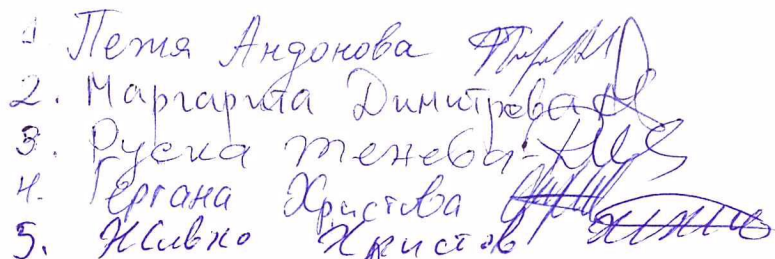 1 Петя Андонова
2. Маргарита Димитрова
3. Руска Тенева-
4. Гергана Христова
5. Живко Христов